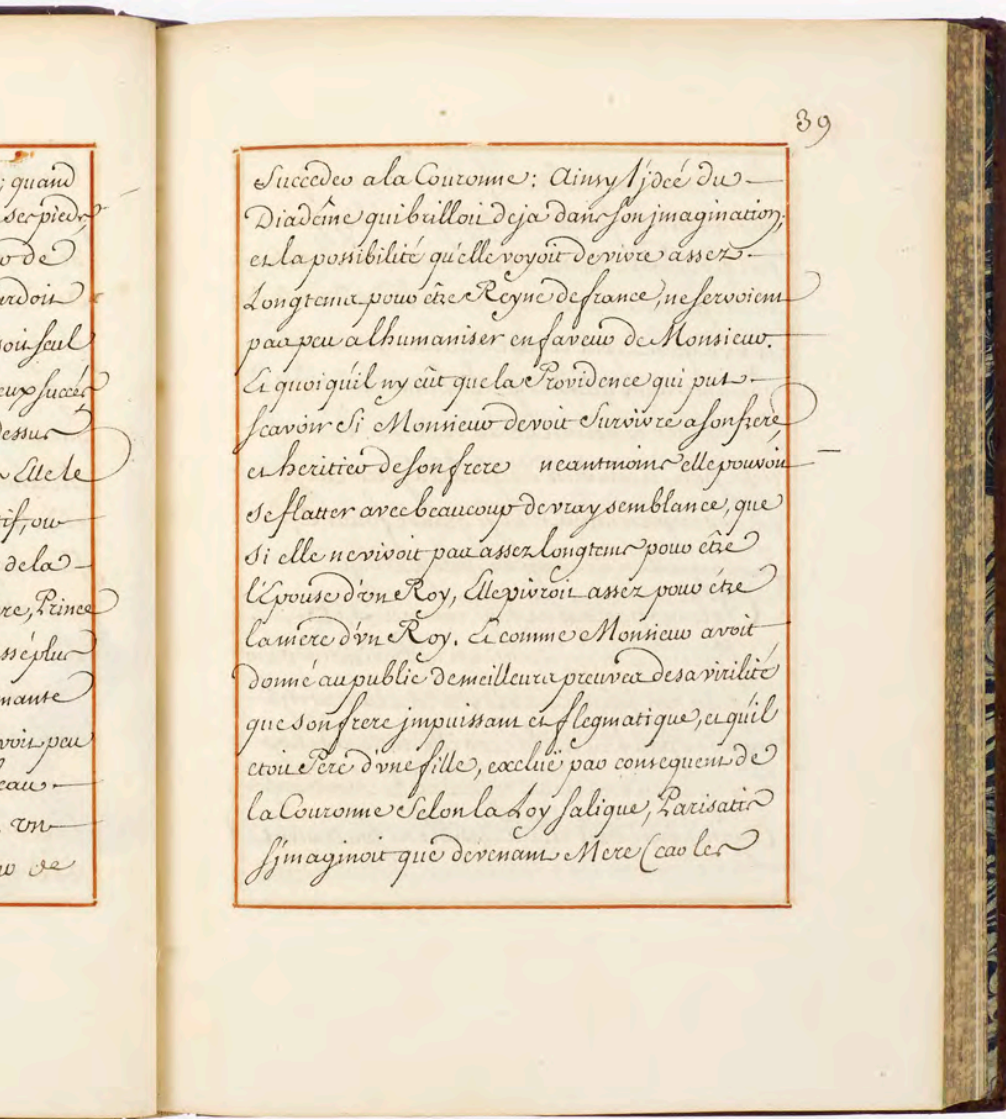 39
Succeder a la Couronne: Ainsy l'jdeé du
Diadême qui brilloit deja dans son jmagination,
et la possibilité qu'elle voyoit de vivre assez
Longtems pour être Reyne de france, ne servoient
pas peu a lhumaniser en faveur de Monsieur.
Et quoi qu'il ny eût que la Providence qui put
scavoir Si Monsieur devoit Survivre a son frere
et heritier de son frere neantmoins elle pouvoit
se flatter avec beaucoup de vray semblance, que
si elle ne vivoit pas assez longtems pour être
l'Epouse d'vn Roy, Elle vivroit assez pour être
la mere d'vn Roy. Et comme Monsieur avoit
donné au public de meilleurs preuves de sa virilité
que son frere jmpuissant et flegmatique, et qu'il
etoit Pere d'vne fille, exclüe par consequent de
la Couronne Selon la Loy salique, Parisatis
s'jmaginoit que devenant Mere (car les
; quand
ses pieds
de
ardoit
soit seul
eux succés
dessus
Elle le
tif, ou
de la
re, Prince
ssé plus
mante
voit peu
eau
vn
de